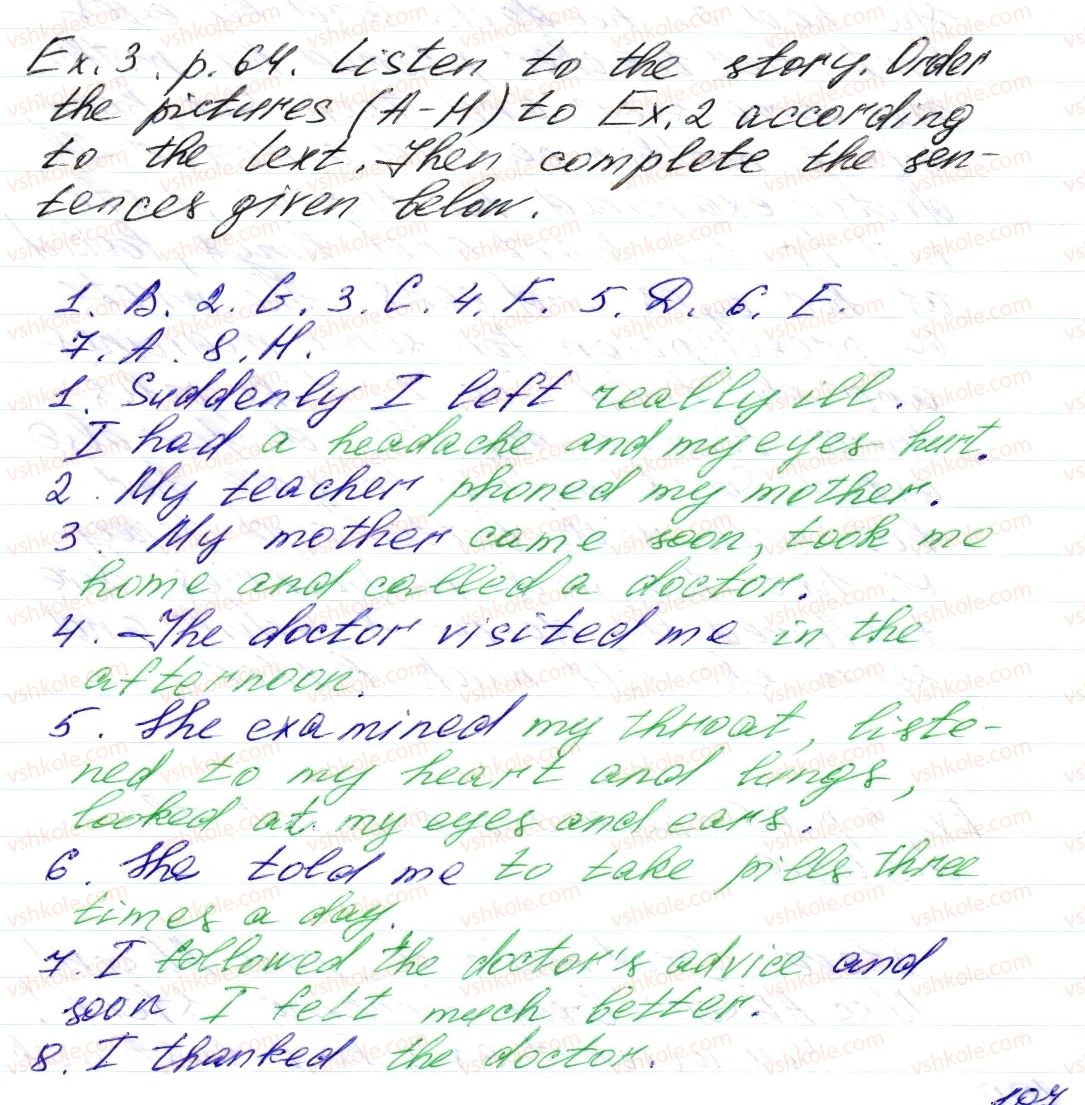 Ex. 3. p. 64. Listen to the story. Order
the pictures (A-H) to Ex. 2 according
to the text. Then complete the sen-
tences given below.
1. B. 2. G. 3. C. 4. F. 5. D. 6. E.
7. A. 8. H.
1. Suddenly I left really ill.
I had a headache and my eyes hurt.
2. My teacher phoned my mother.
3. My mother came soon, took me
home and called a doctor.
4. The doctor visited me in the
afternoon.
5. She examined my throat, liste-
ned to my heart and lungs,
looked at my eyes and ears.
6. She told me to take pills three
times a day.
7. I followed the doctor's advice and
soon I felt much better.
8. I thanked the doctor.
107